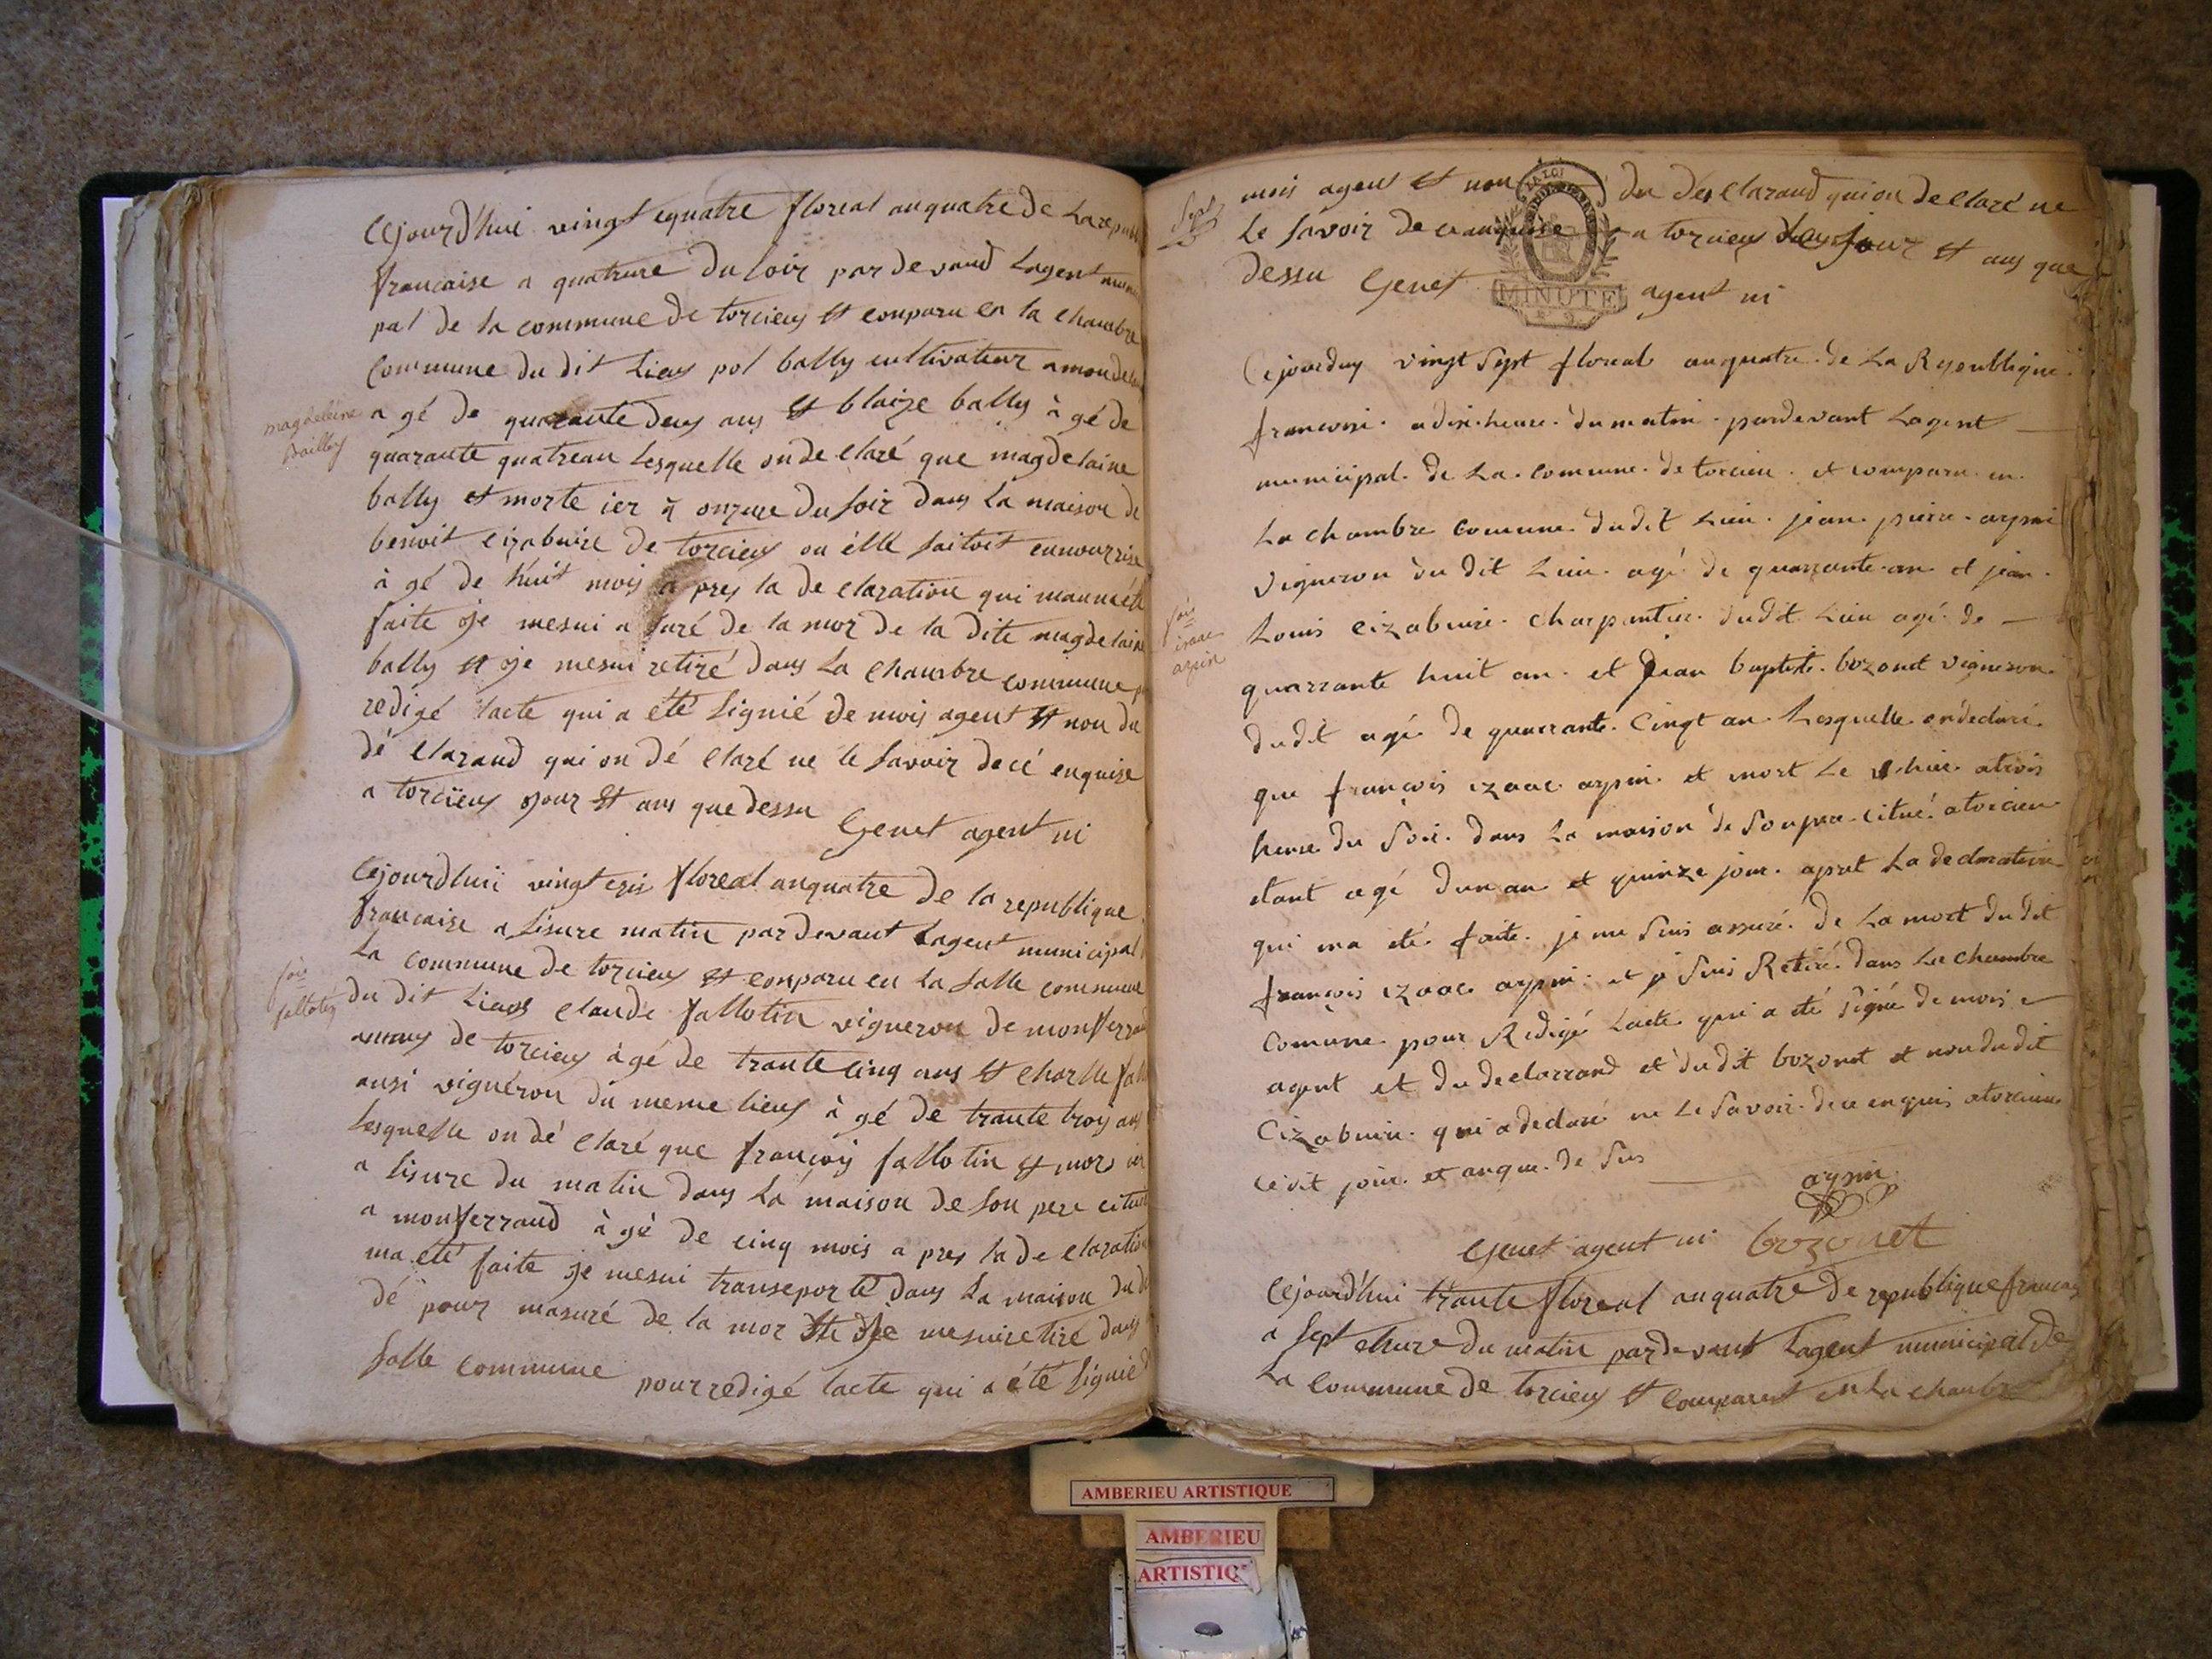 Cejourd'hui vingt equatre floreal anquatre de La repub
francaise a quatrure du soir par devand Lagent muni
pal de la commune de torcieu et conparu en la chambre
Commune du dit Lieu pol bally cultivateur amonde
magdeleine
Bailly
a gé de quarante deux ans et blaize bally à gé de
quarante quatrean Lesquelle on de claré que magdelaine
bally et morte ier à onzure du soir dans la maison de
benoit cizabuire de torcieu ou élle saitoit ennourrise
à gé de huit mois a pres la de claration qui manneété
faite je mesui a suré de la mor de la dite magdelaine
bally et je mesui retiré dans La chambre commune
redigé lacte qui a été Signié de mois agent et non du
dé clarand qui on dé claré ne le savoir de cé enquise
a torcieu jour et ans que dessu
Genet agent m
Cejourdhui vingt esis floreal anquatre de la republique
francaise a sisure matin pardevant Lagent municipal
La commune de torcieu et conparu en la salle commune
fois
fallotin
du dit Lieus claude fallotin vigneron de monferrand
de torcieu àgé de trante cinq ans et charlle fall
ausi vignéron du meme lieu à gé de trante trois ans
Lesquelle on dé claré que françois fallotin et mors ier
a sisure du matin dans la maison de son pere citué
a monferrand à gé de cinq mois a pres la de claration
ma été faite je mesui transeporté dans La maison du
dé pour masuré de la mor et je mesuiretiré dans
Salle commune pourredigé lacte qui a été Signié d
mois agent et non du dés clarand qui on de claré ne
Le savoir de a torcieu jour et ans que
dessu Genet agent m
LA LOI
MINUTE
Cejourduy vingt Sept floreal anquatre de La Republique
francoise a dix heure du matin pardevant Lagent
municipal de La comune de torcieu et comparu en
La chambre comune dudit Lieu jean piere arpin
Vigneron du dit Lieu agé de quarrante an et jean
fois
isaac
arpin
Louis cizabuire charpentier dudit Lieu agé de
quarrante huit an et Jean baptiste bozonet vigneron
dudit agé de quarrante cingt an Lesquelle ondeclaré
que françois izaac arpin et mort Le hier atrois
heure du Soir dans La maison de Sonpere citué atorcieu
etant agé dun an et quinze jour apret La declaration
qui ma été faite je me suis assuré de La mort du dit
françois izaac arpin et je suis Retiré dans La chambre
Comune pour Redigé Lacte qui a été Signé de mois
agent et du declarrand et dudit bozonet et non dudit
Cizabuire qui a declaré ne Le Savoir de ce enquis atorcieu
cedit jour et anque de Sus
arpin
Genet agent m bozonet
Cejourd'hui trante floreal anquatre de republique francais
a Sept eheure du matin pardevant Lagent municipal de
La Commune de torcieu et Comparent en La chambre
AMBERIEU ARTISTIQUE
AMBERIEU
ARTISTIQ